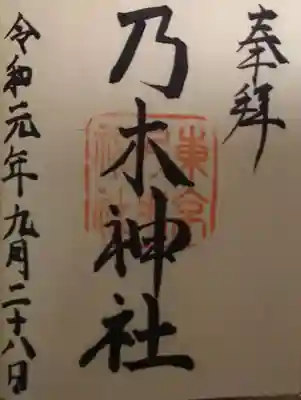 奉拝
乃木神社
令和元年九月二十八日